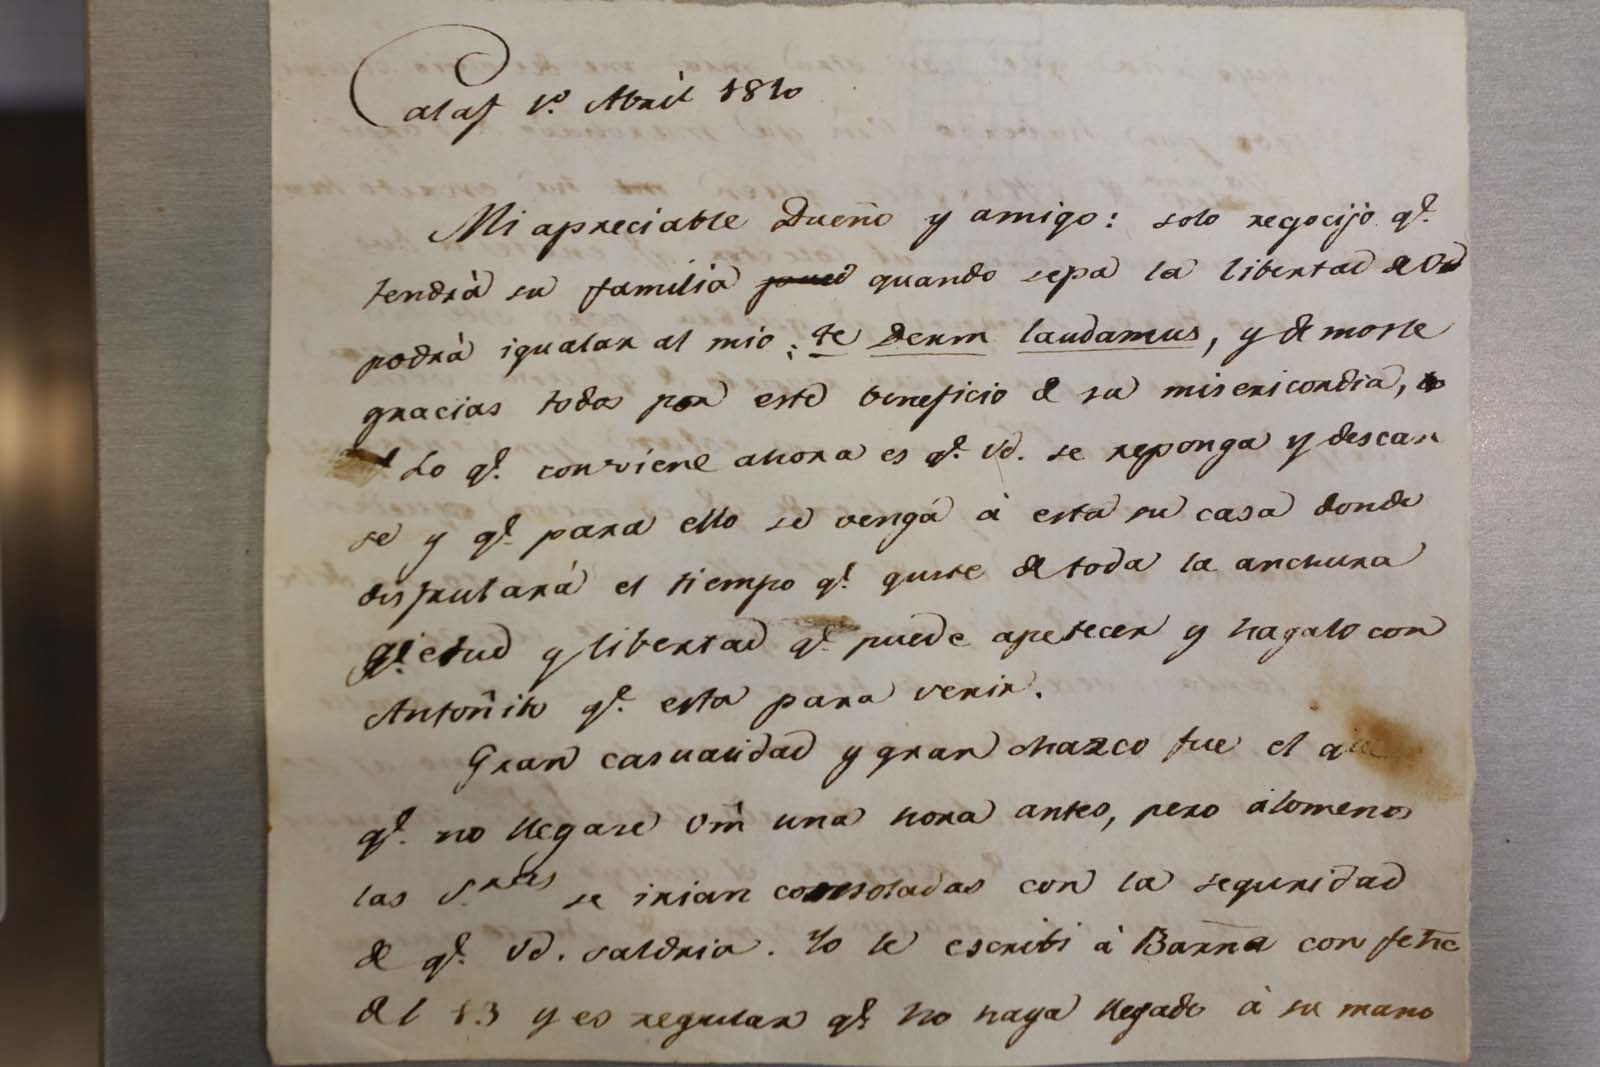 Calaf 1.º Abril 1810
Mi apreciable Dueño y amigo: solo regocijo q.e
tendrá su familia quando sepa la libertad de Vd
podrá igualar al mio; te Deum laudamus, y demosle
gracias todos por este beneficio de su misericordia,
Lo q.e conviene ahora es q.e Vd. se reponga y descan
se y q.e para ello se venga à esta su casa donde
disfrutará el tiempo q.e guste de toda la anchura
q.ietud y libertad q.e puede apetecer y hagalo con
Antoñito q.e esta para venir.
Gran casualidad y gran chazco fue el
q.e no llegase Vm una hora antes, pero alomenos
las S.ras se irian consoladas con la seguridad
de q.e Vd. saldria. Yo le escribi à Barna con fecha
del 13 y es regular q.e no haya llegado à su mano